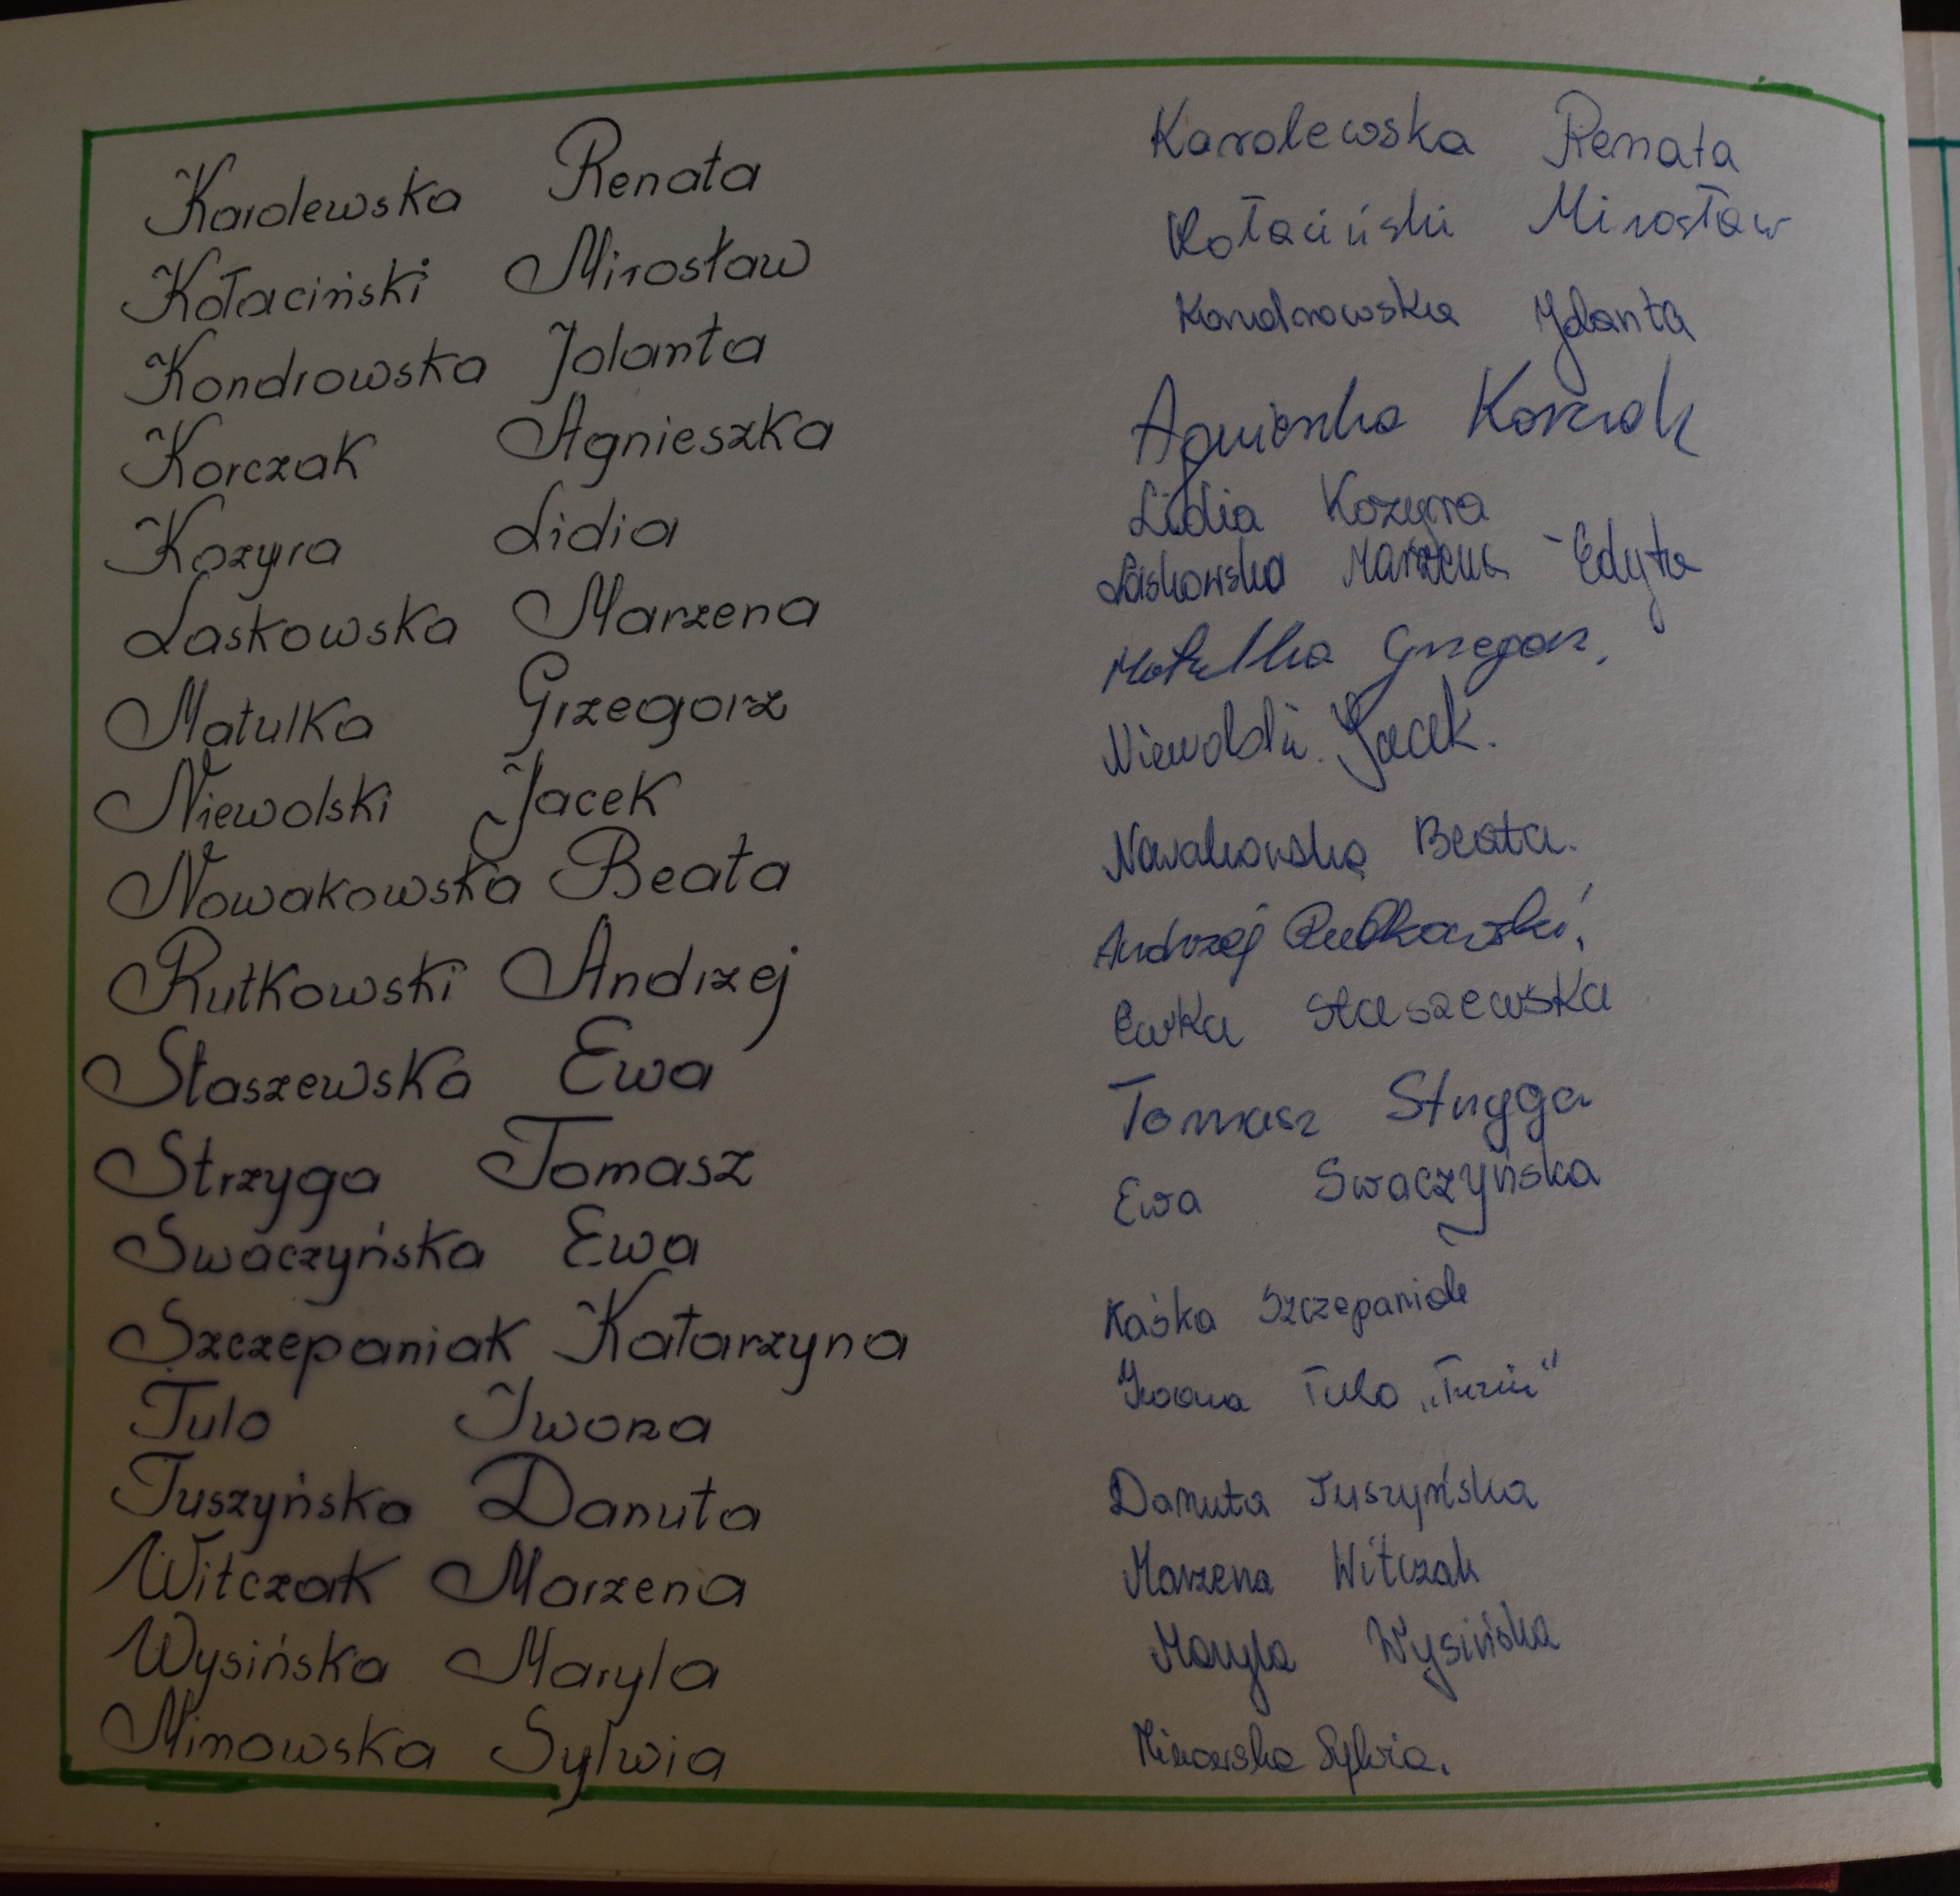 Karolewska Renata Karolewska Renata
Kołaciński Mirosław Kołaciński Mirosław
Kondrowska Jolanta Kondrowska Jolanta
Korczak Agnieszka Agnieszka Korczak
Kozyra Lidia Lidia Kozyra
Laskowska Marzena Laskowska Marzena - Edyta
Matulka Grzegorz Matulka Grzegorz.
Niewolski Jacek Niewolski Jacek.
Nowakowska Beata Nowakowska Beata.
Rutkowski Andrzej Andrzej Rutkowski
Staszewska Ewa Ewka Staszewska
Strzyga Tomasz Tomasz Strzyga
Swaczyńska Ewa Ewa Swaczyńska
Szczepaniak Katarzyna Kaśka Szczepaniak
Tulo Iwona Iwona Tulo
Tuszyńska Danuta Danuta Tuszyńska
Witczak Marzena Marzena Witczak
Wysińska Maryla Maryla Wysińska
Mimowska Sylwia Sylwia.